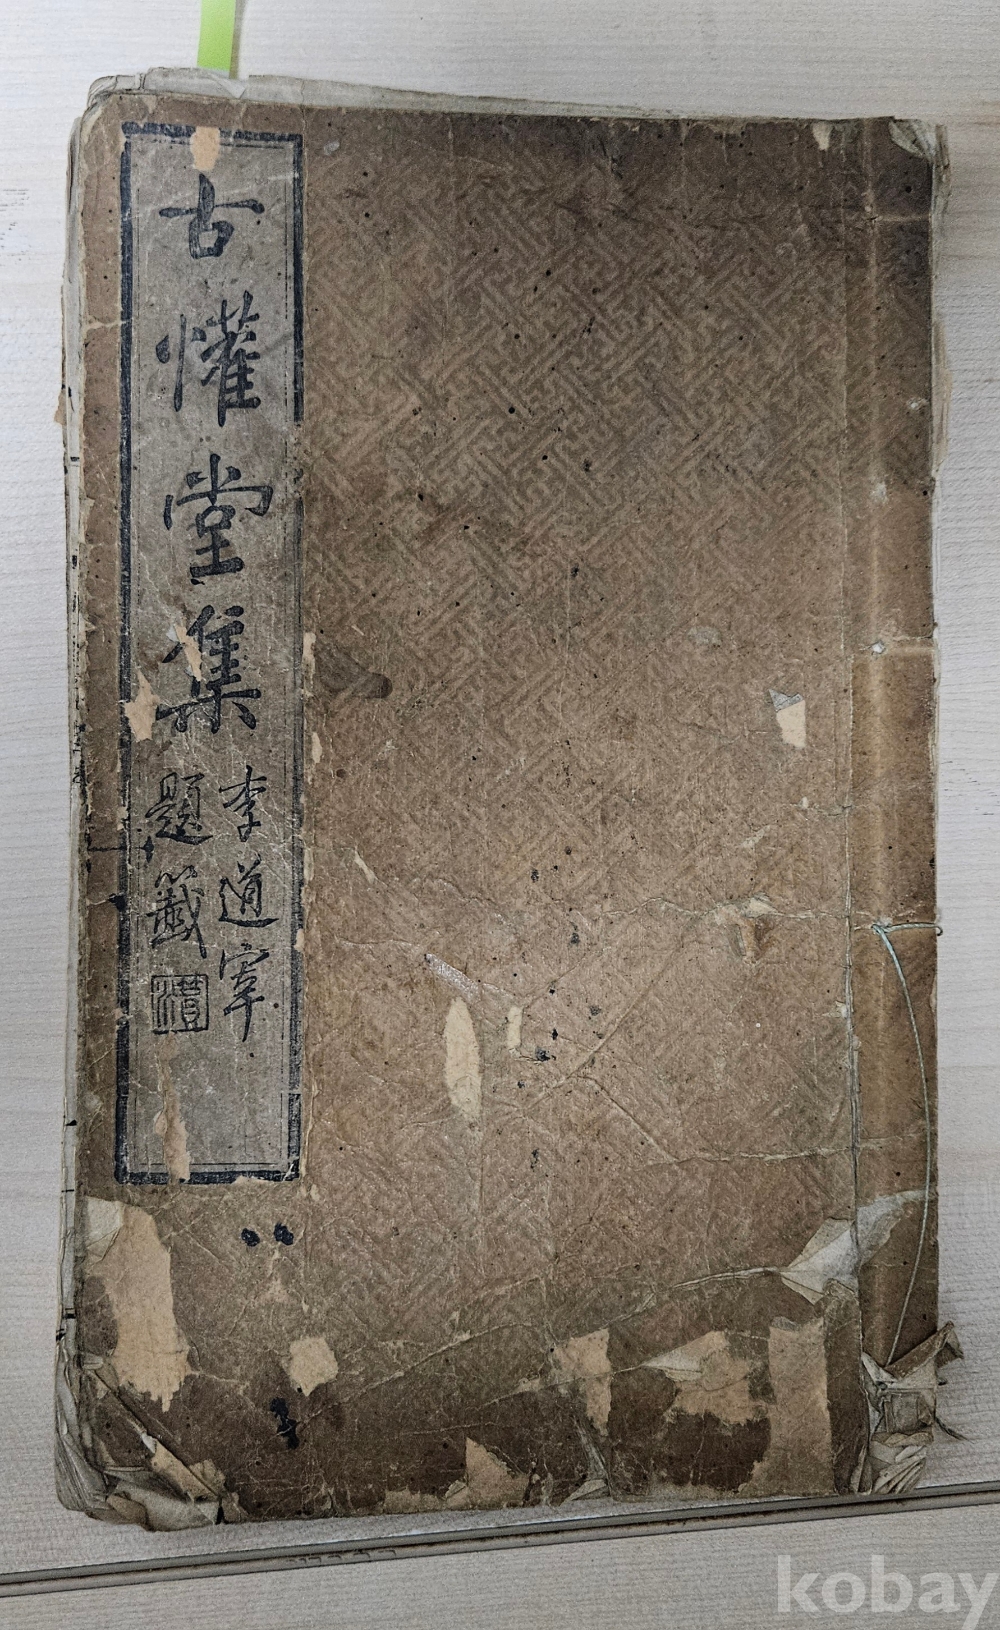 古懽堂集
李道宰
題籤
kobay